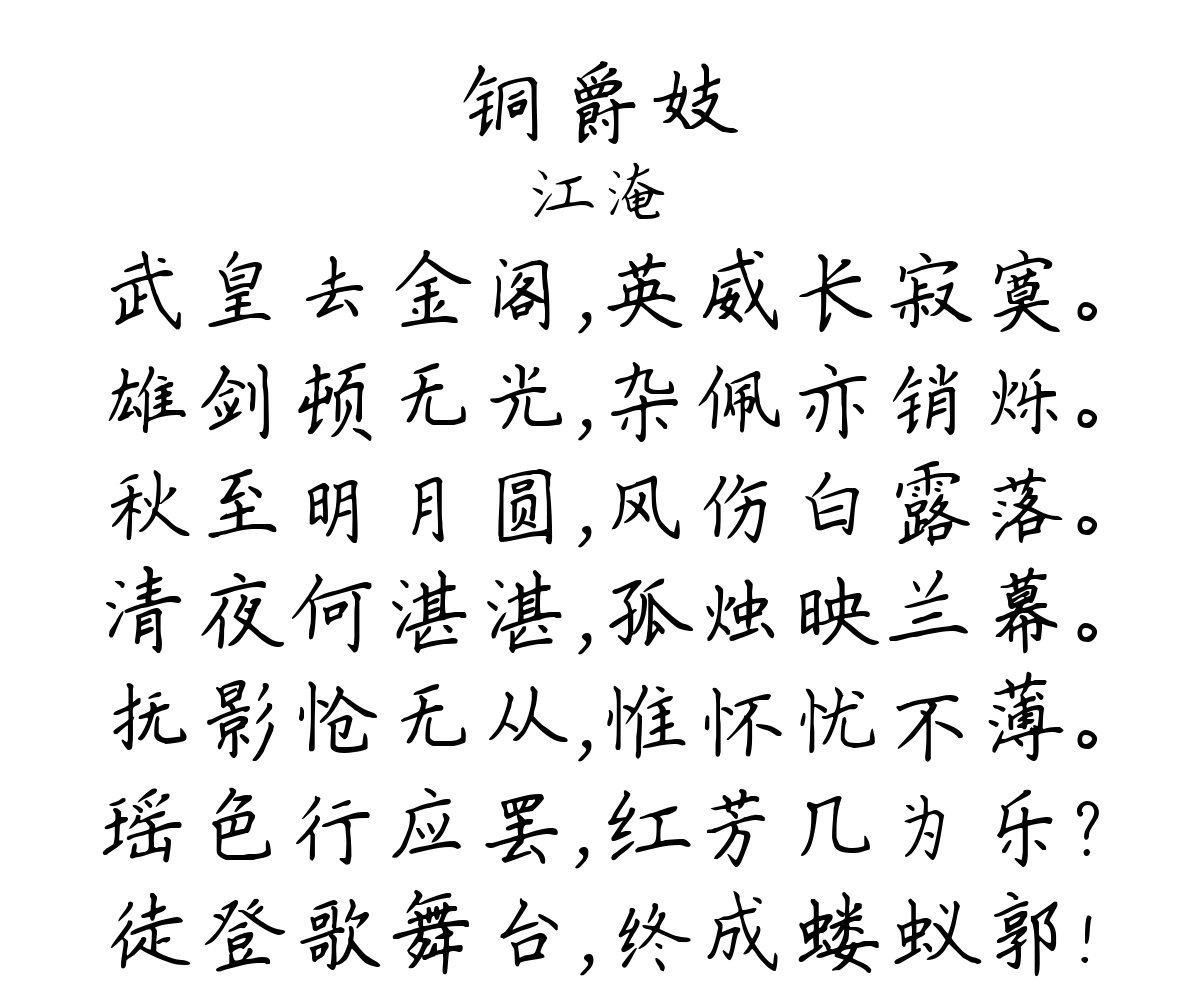 铜爵妓
江淹
武皇去金阁,英威长寂寞。
雄剑顿无光,杂佩亦销烁。
秋至明月圆,风伤白露落。
清夜何湛湛,孤烛映兰幕。
抚影怆无从,惟怀忧不薄。
瑶色行应罢,红芳几为乐?
徒登歌舞台,终成蝼蚁郭!